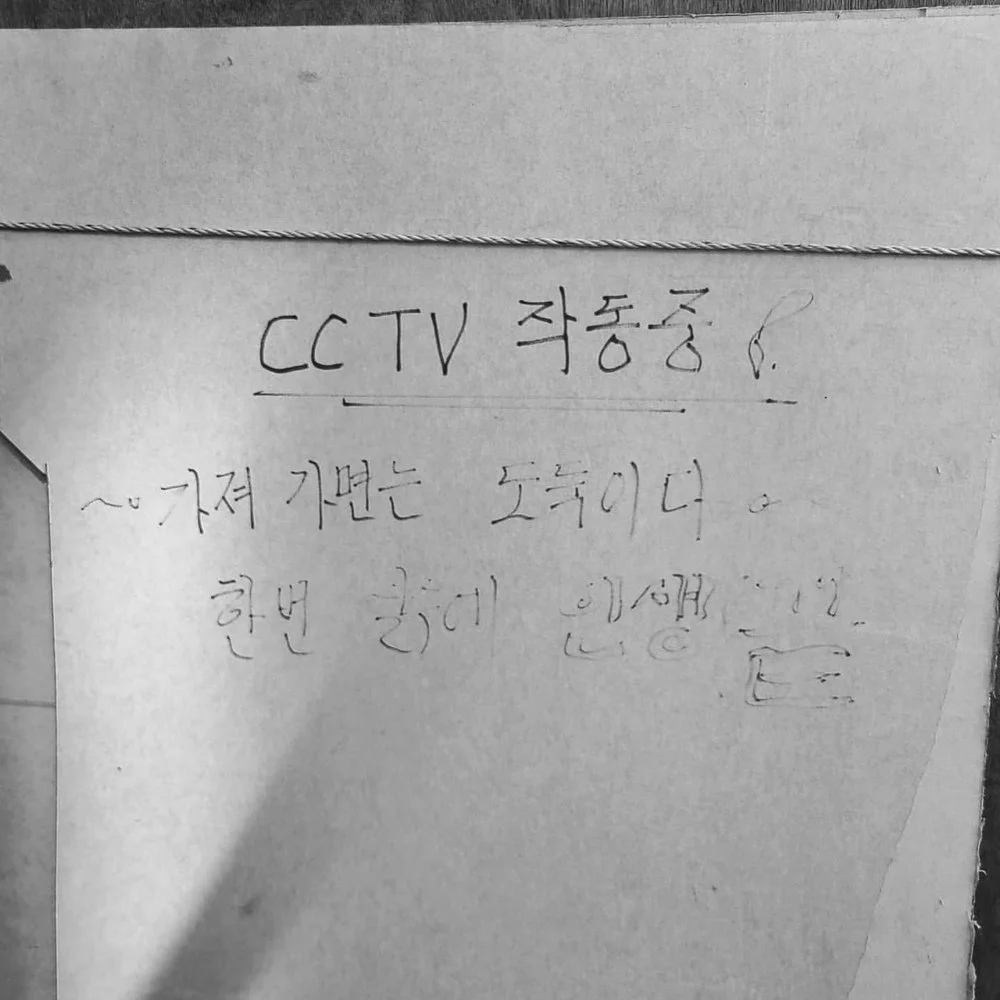 CCTV 작동중!
~ 가져 가면는 도둑이다.
한번 실수에 인생